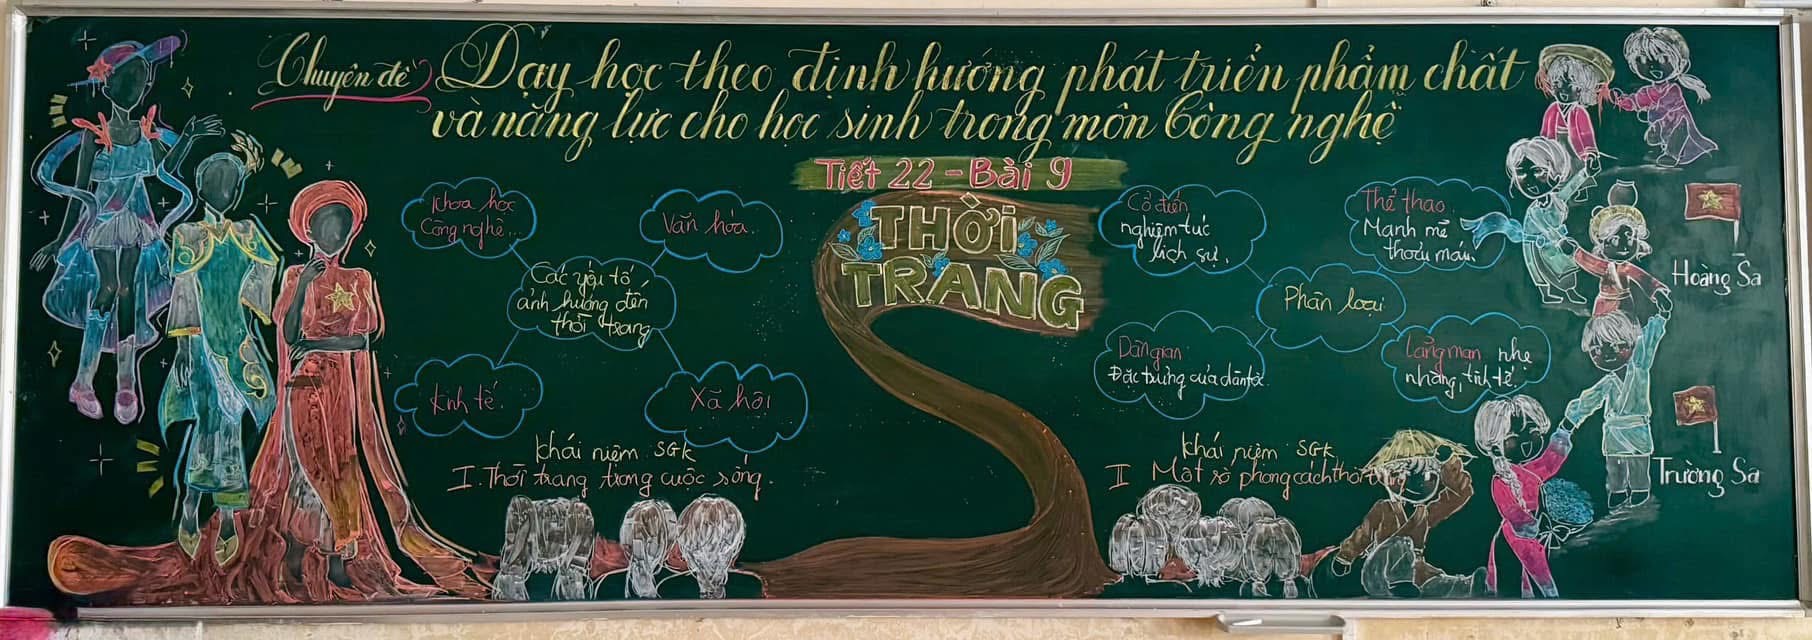 Chuyên đề
Dạy học theo định hướng phát triển phẩm chất
và năng lực cho học sinh trong môn Công nghệ
Tiết 22 - Bài 9
THỜI
TRANG
Khoa học
Công nghệ...
Văn hóa.
Các yếu tố
ảnh hưởng đến
thời trang
Kinh tế.
Xã hội
Khái niệm SGK
I. Thời trang trong cuộc sống.
Cổ điển
nghiêm túc
lịch sự.
Thể thao
Mạnh mẽ
thoải mái.
Phân loại
Dân gian
Đặc trưng của dân tộc.
Lãng mạn nhẹ
nhàng, tinh tế.
Khái niệm SGK
II Một số phong cách thời
Hoàng Sa
Trường Sa